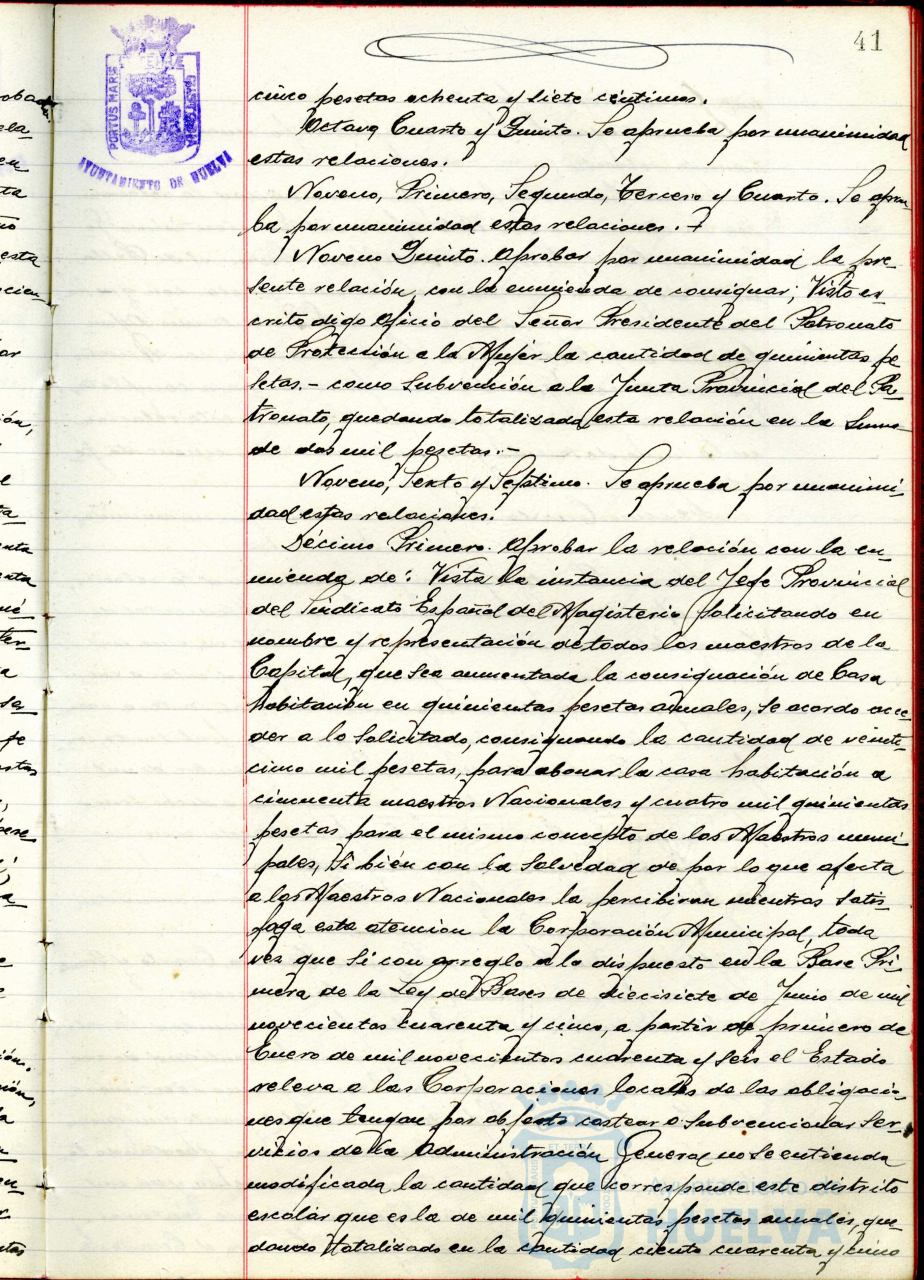 41
PORTUS MARIS
AYUNTAMIENTO DE HUELVA
cinco pesetas ochenta y siete céntimos.
Octavo, Cuarto y Quinto. Se aprueba por unanimidad
estas relaciones.
Noveno, Primero, Segundo, Tercero y Cuarto. Se aprue-
ba por unanimidad estas relaciones.
Noveno Quinto. Aprobar por unanimidad la pre-
sente relación, con la enmienda de consignar; Visto es-
crito digo oficio del Señor Presidente del Patronato
de Protección a la Mujer la cantidad de quinientas pe
setas.- como Subvención a la Junta Provincial del Pa-
tronato, quedando totalizada esta relación en la Suma
de dos mil pesetas.-
Noveno, Sexto y Septimo. Se aprueba por unanimi-
dad estas relaciones.
Décimo Primero. Aprobar la relación con la en-
mienda de: Vista la instancia del Jefe Provincial
del Sindicato Español del Magisterio Solicitando en
nombre y representación de todos los maestros de la
Capital, que sea aumentada la consignación de Casa
habitación en quinientas pesetas anuales, se acordo acce-
der a lo Solicitado, consignando la cantidad de veinti-
cinco mil pesetas, para abonar la casa habitación a
cincuenta maestros Nacionales y cuatro mil quinientas
pesetas para el mismo concepto de los Maestros muni
pales, Si bién con la Salvedad de por lo que afecta
a los Maestros Nacionales la percibiran mientras Satis-
faga esta atencion la Corporación Municipal, toda
vez que Si con arreglo a lo dispuesto en la Base Pri-
mera de la Ley de Bases de diecisiete de Junio de mil
novecientos cuarenta y cinco, a partir de primero de
Enero de mil novecientos cuarenta y seis el Estado
releva a las Corporaciones locales de las obligacio-
nes que tengan por objeto costear o Subvencionar Ser-
vicios de la Administración General no se entienda
modificada la cantidad que corresponde este distrito
escolar que es la de mil quinientas pesetas anuales, que-
dando totalizado en la cantidad ciento cuarenta y cinco
HUELVA